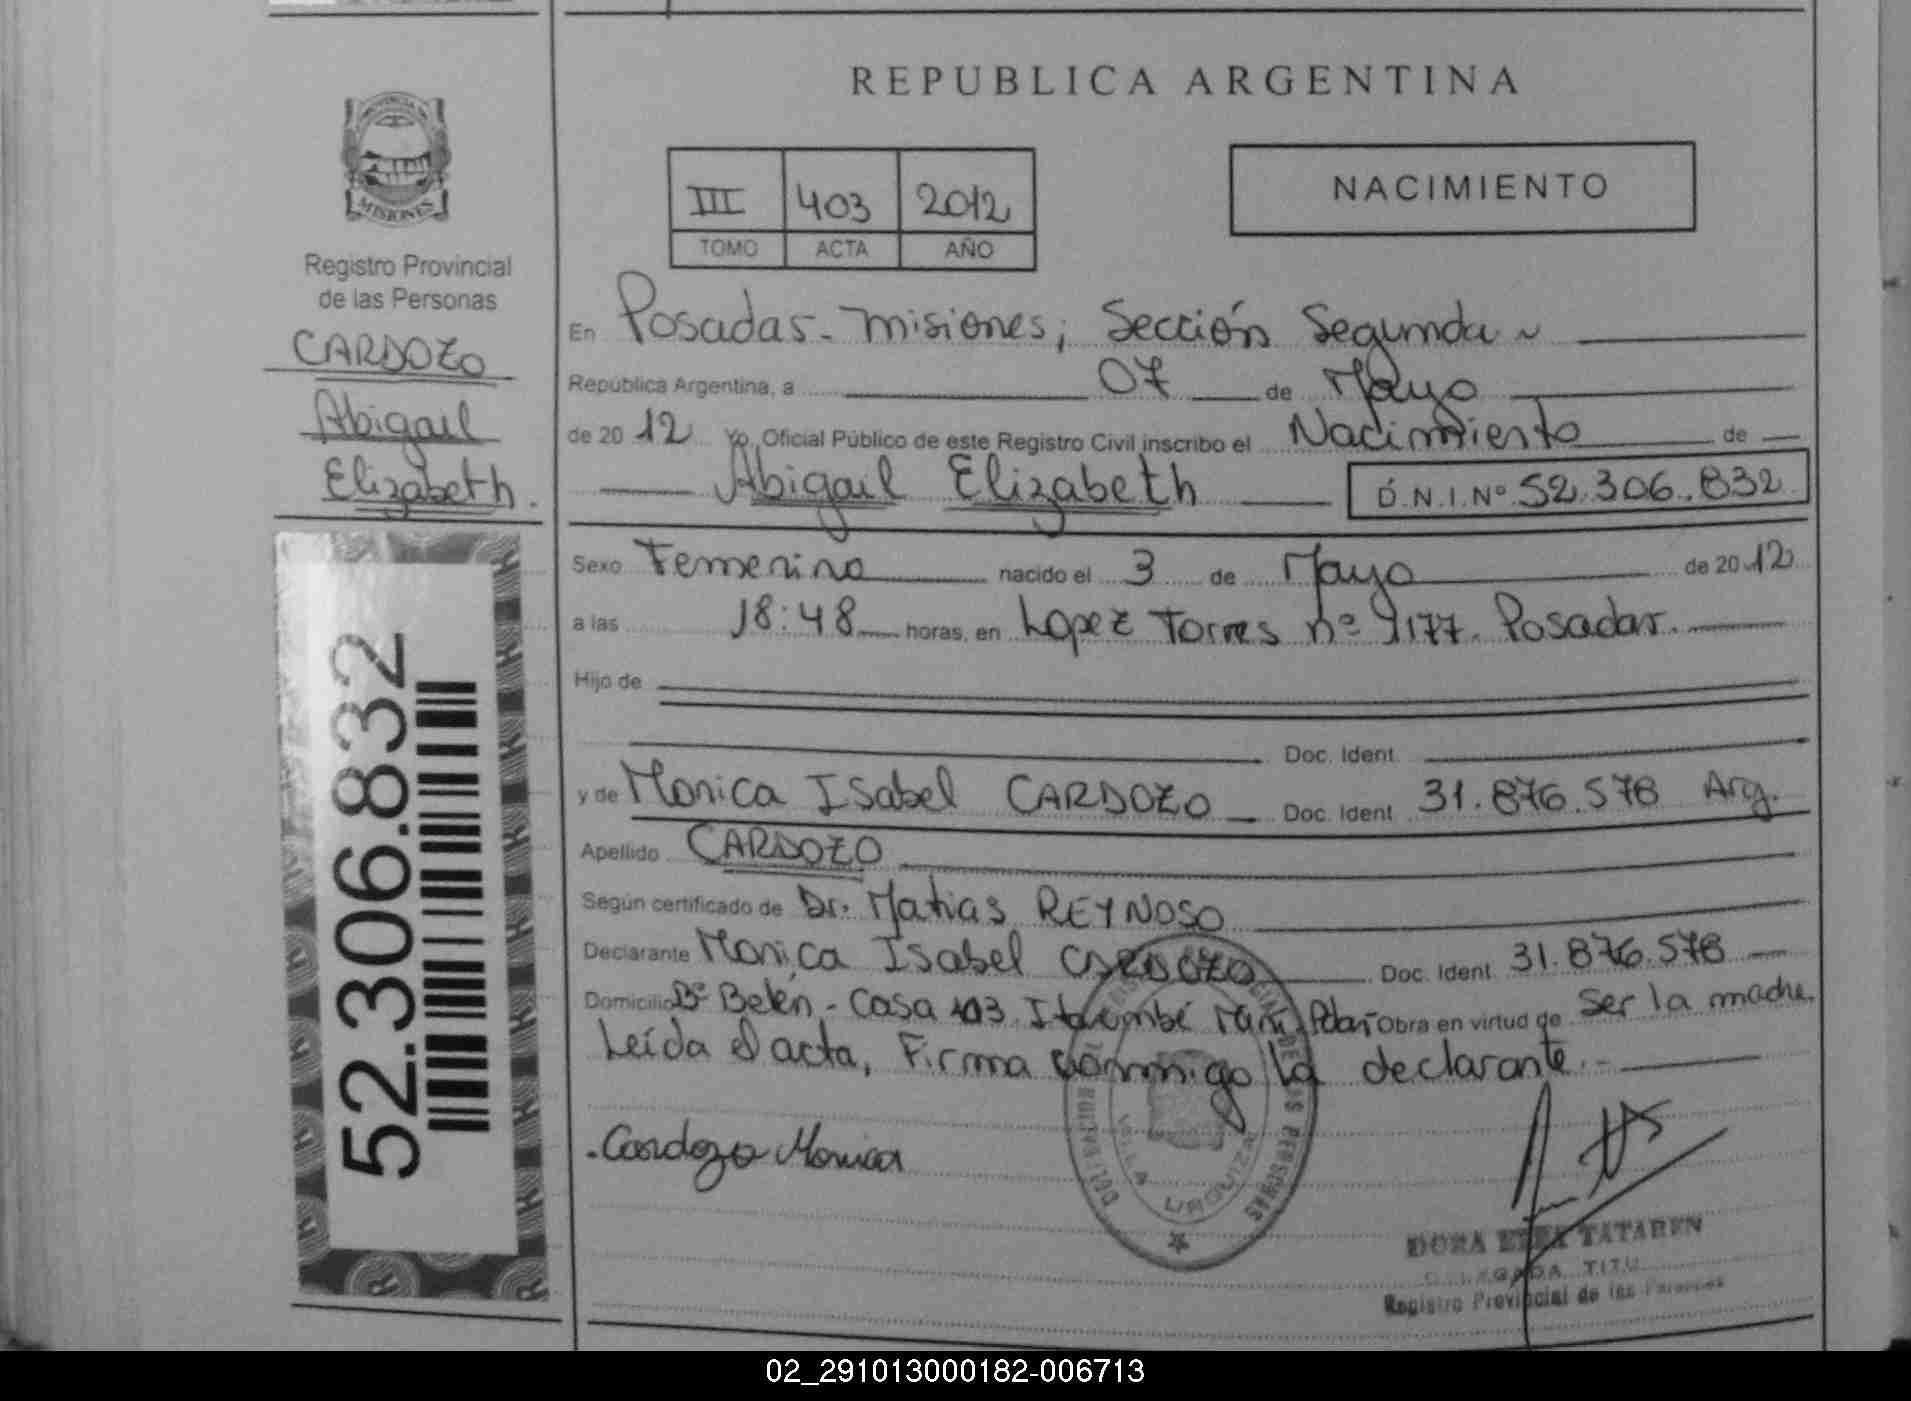 REPUBLICA ARGENTINA
PROVINCIA DE
MISIONES
Registro Provincial
de las Personas
CARDOZO
Abigail
Elizabeth.
52.306.832
III 403 2012
TOMO ACTA AÑO
NACIMIENTO
En Posadas - Misiones; Sección Segunda
República Argentina, a 07 de Mayo
de 2012 Yo, Oficial Público de este Registro Civil inscribo el Nacimiento de
Abigail Elizabeth D.N.I.Nº 52.306.832
Sexo Femenino nacido el 3 de Mayo de 2012
a las 18:48 horas, en Lopez Torres nº 1177. Posadas.
Hijo de
Doc. Ident.
y de Monica Isabel CARDOZO Doc. Ident. 31.876.578 Arg.
Apellido CARDOZO
Según certificado de Dr. Matias REYNOSO
Declarante Monica Isabel CARDOZO Doc. Ident. 31.876.578
Domicilio Bº Belén - Casa 103 Itaembé Obra en virtud de ser la madre.
Leída el acta, Firma conmigo la declarante.
Cardozo Monica
DE LAS PERSONAS
VILLA URQUIZA
DORA TATAREN
DELEGADA TITU
Registro Provincial de las Personas
02_291013000182-006713